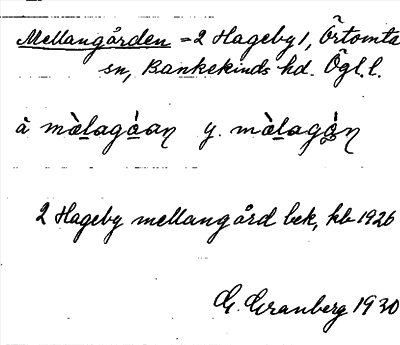 Mellangården = 2 Hageby 1, Örtomta
sn, Bankekinds hd. Ögl. l.
å mὰlagɔ́aṇ y. mὰlagɔ́ṇ
2 Hageby mellangård bek, kb 1926
G. Granberg 1930